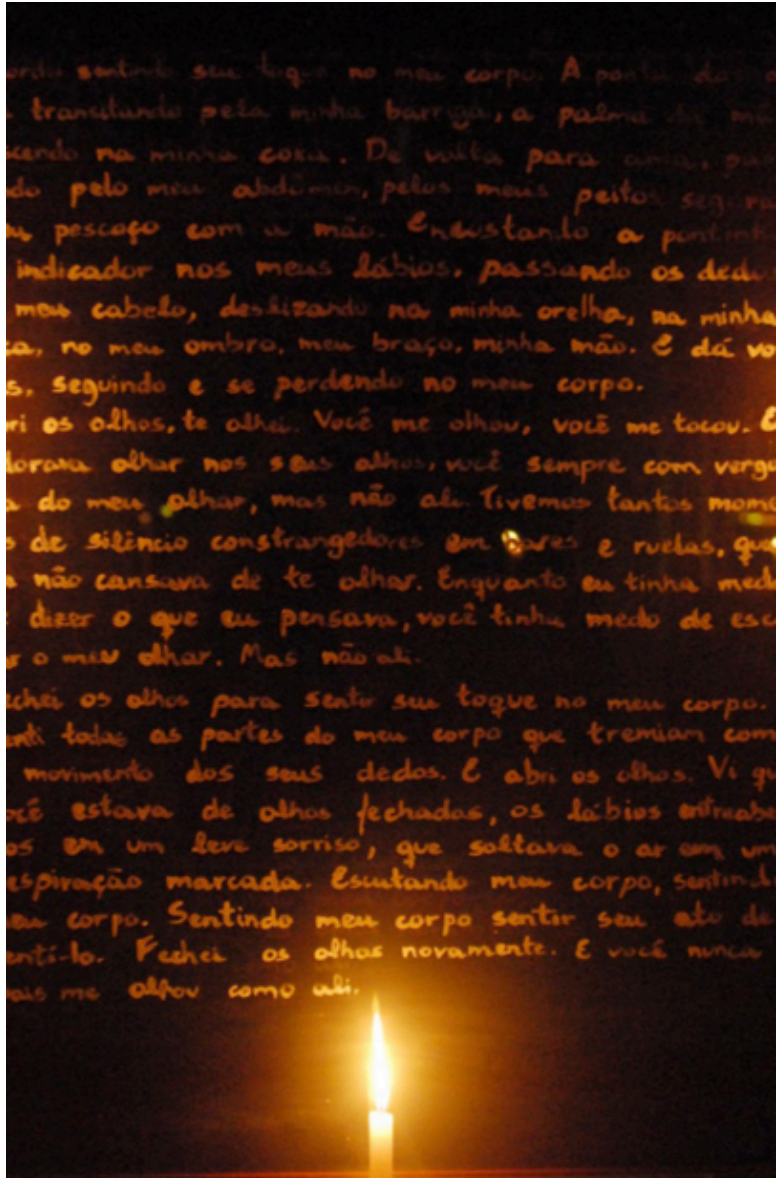 sentindo seu toque no meu corpo. A ponta das
transitando pela minha barriga, a palma da mão
cendo na minha coxa. De volta para cima,
ndo pelo meu abdômen, pelos meus peitos
pescoço com a mão. Encostando a pontinha
indicador nos meus lábios, passando os dedo
meu cabelo, deslizando na minha orelha, na minha
ca, no meu ombro, meu braço, minha mão. E dá vo
s, seguindo e se perdendo no meu corpo.
bri os olhos, te olhei. Você me olhou, você me tocou. E
dorava olhar nos seus olhos, você sempre com vergo
a do meu olhar, mas não ali. Tivemos tantos mome
s de silêncio constrangedores em bares e ruelas, que
a não cansava de te olhar. Enquanto eu tinha medo
e dizer o que eu pensava, você tinha medo de esc
ar o meu olhar. Mas não ali.
echei os olhos para sentir seu toque no meu corpo.
enti todas as partes do meu corpo que tremiam com
movimento dos seus dedos. E abri os olhos. Vi qu
ocê estava de olhos fechados, os lábios entreabe
os em um leve sorriso, que soltava o ar em um
espiração marcada. Escutando meu corpo, sentindo
eu corpo. Sentindo meu corpo sentir seu ato de
entí-lo. Fechei os olhos novamente. E você nunca
ais me olhou como ali.